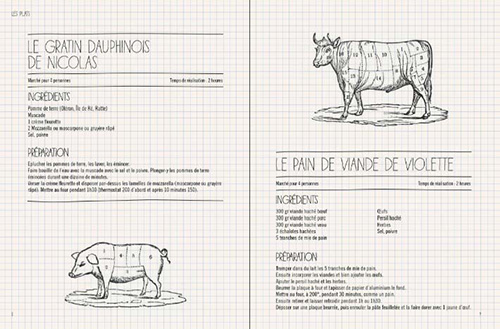 LES PLATS
LE GRATIN DAUPHINOIS
DE NICOLAS
Marché pour 4 personnes
Temps de réalisation : 2 heures
INGRÉDIENTS
Pomme de terre (Oléron, Île de Ré, Ratte)
Muscade
1 crème fleurette
2 Mozzarella ou mascarpone ou gruyère râpé
Sel, poivre
PRÉPARATION
Eplucher les pommes de terre, les laver, les émincer.
Faire bouillir de l'eau avec la muscade avec le sel et le poivre. Plonger-y les pommes de terre
émincées durant une dizaine de minutes.
Verser la crème fleurette et disposer par-dessus les lamelles de mozzarella (mascarpone ou gruyère
râpé). Mettre au four pendant 1h30 (thermostat 200 d'abord et après 10 minutes 150).
LE PAIN DE VIANDE DE VIOLETTE
Marché pour 4 personnes
Temps de réalisation : 2 heures
INGRÉDIENTS
300 gr viande haché bœuf
300 gr viande haché porc
300 gr viande haché veau
3 échalotes hachées
5 tranches de mie de pain
Œufs
Persil haché
Herbes
Sel, poivre
PRÉPARATION
Tremper dans du lait les 5 tranches de mie de pain.
Ensuite incorporer les viandes et bien ajouter les œufs.
Ajouter le persil haché et les herbes.
Beurrer la plaque à four et tapisser de papier d'aluminium le fond.
Mettre au four, à 200°, pendant 30 minutes, comme un pain.
Ensuite retirer et laisser refroidir pendant 1h ou 1h30.
Déposer sur une plaque beurrée, puis enrouler la pâte feuilletée et la faire dorer avec 1 jaune d'œuf.